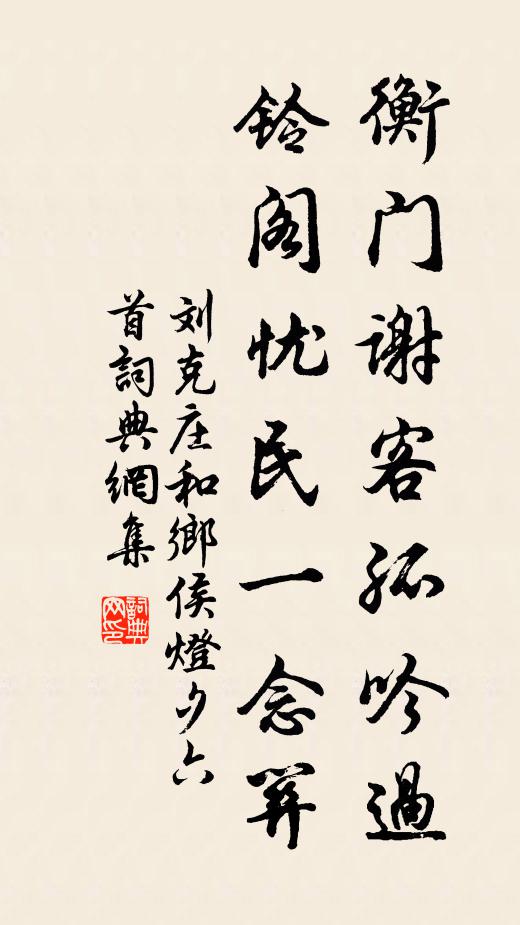 衡门谢客孤吟過
鈴阁忧民一念
刘克庄和鄉侯燈夕六
首詞典網集
詞典
网印